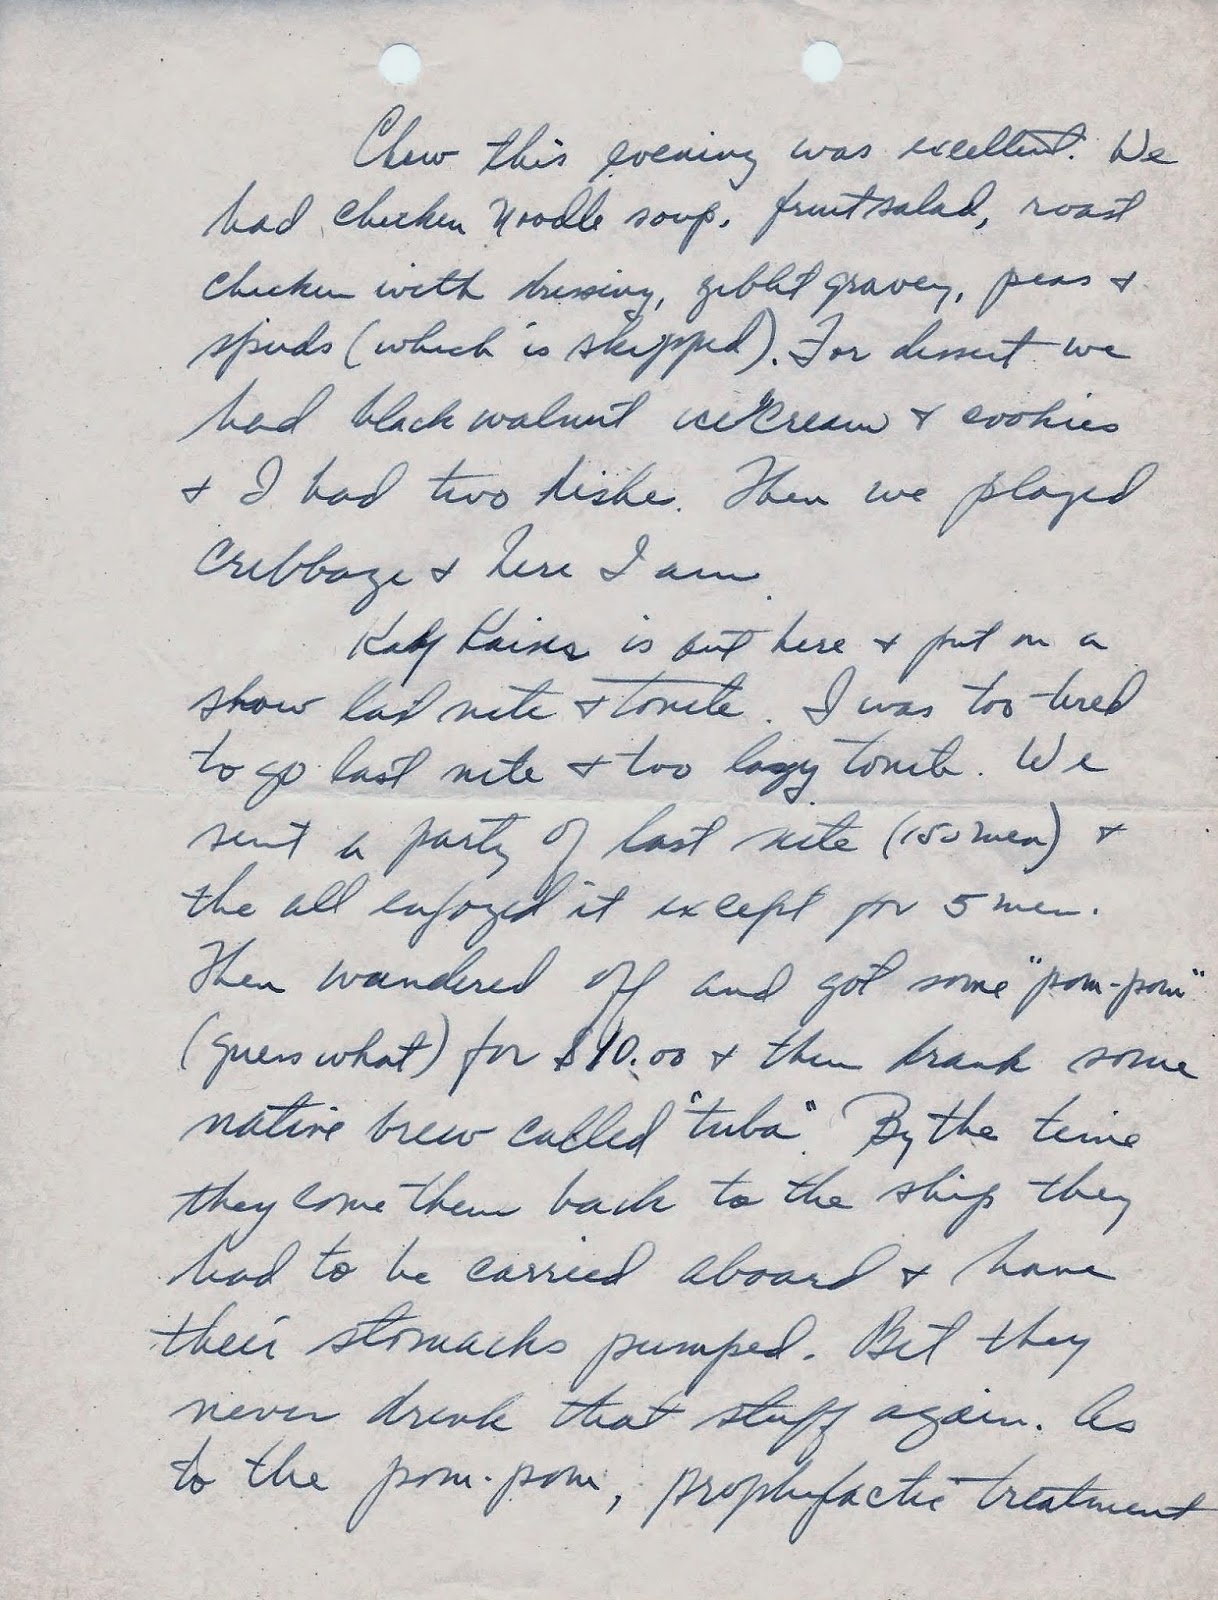 Chow this evening was excellent. We
had chicken Noodle soup, fruit salad, roast
chicken with dressing, giblit gravey, peas +
spuds (which is skipped). For dessert we
had black walnut ice cream + cookies
+ I had two dishe. Then we played
Cribbage + here I am.
Kay Kaiser is out here + put on a
show last nite + tonite. I was too tired
to go last nite + too lazy tonite. We
sent a party of last nite (150 men) +
the all enjoyed it except for 5 men.
Then wandered off and got some "pom-pom"
(guess what) for $10.00 + then drank some
native brew called "tuba". By the time
they come them back to the ship they
had to be carried aboard + have
their stomachs pumped. Bet they
never drink that stuff again. As
to the pom-pom, prophylactic treatment